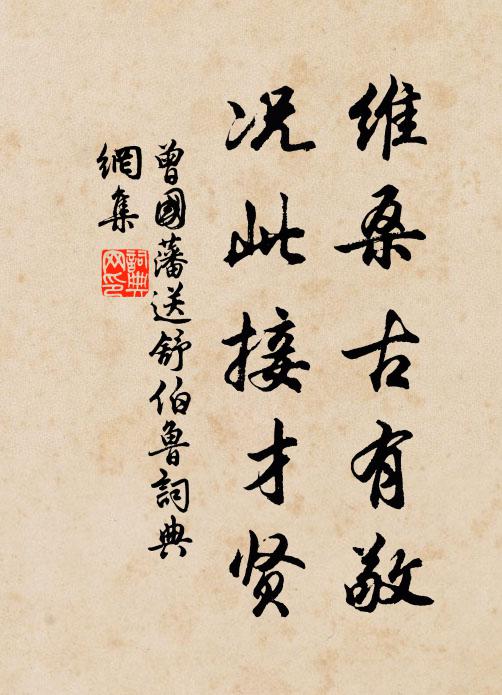 维桑古有敬
况此接才贤
曾國藩送舒伯鲁詞典
網集
詞典
网印